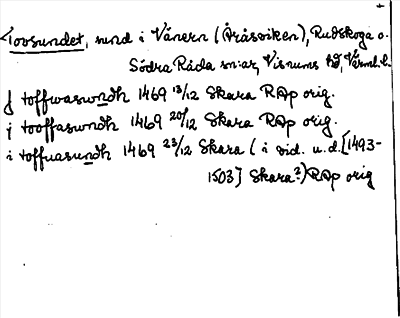 Tovsundet, sund i Vänern (Åråsviken), Rudskoga o.
Södra Råda sn:ar, Visnums hd, Värml. l.
j toffwaswndh 1469 13/12 Skara RAp orig.
j tooffaswndh 1469 20/12 Skara RAp orig.
i toffuasundh 1469 23/12 Skara (i vid. u.d. [1493-
1503] Skara?) RAp orig